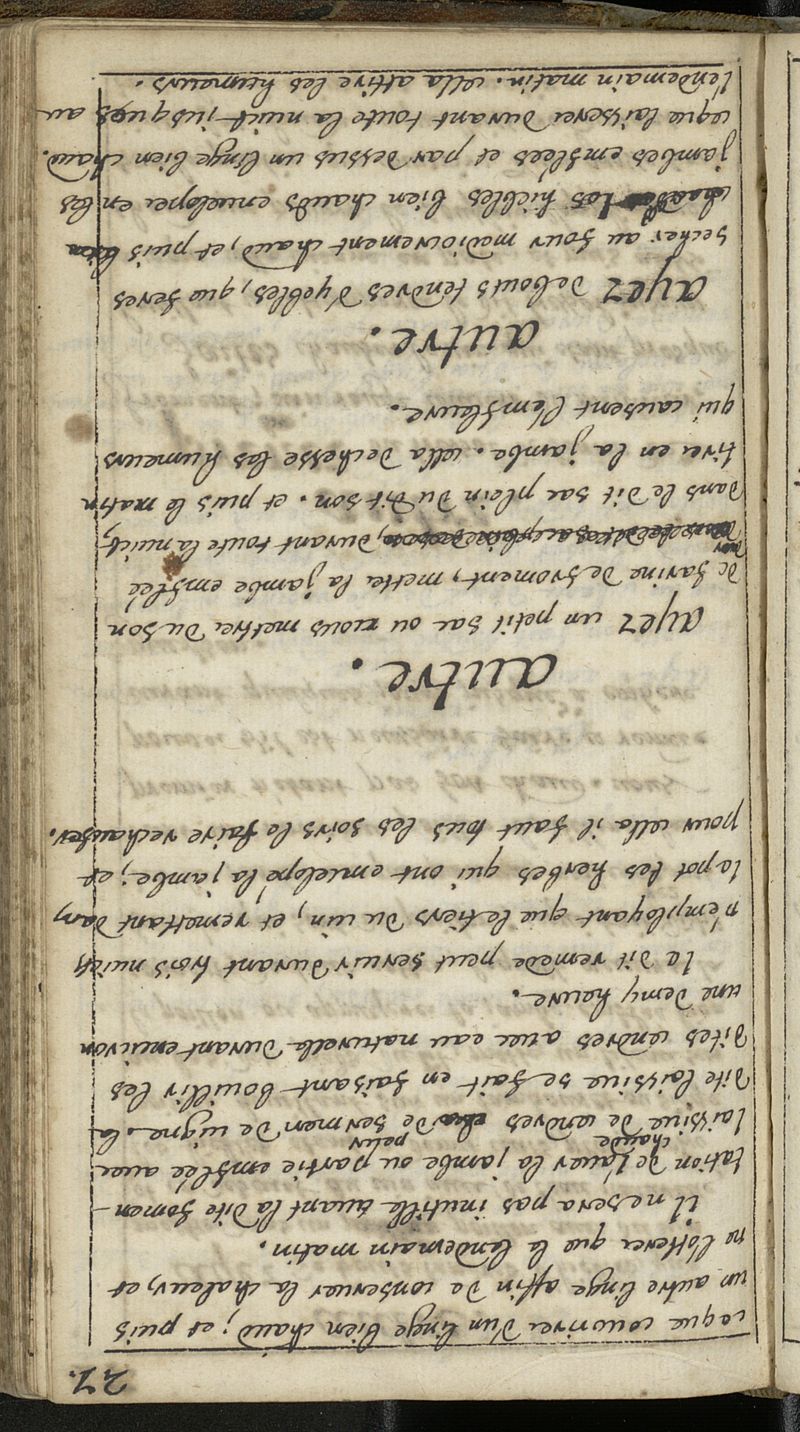 27.
ce que couvrirez d'un linge bien chaud; et puis
un autre linge affin de conserver la chaleur, et
ne l'otterez que le lendemain matin.
il ne sera pas inutille avant la dite fomen-
tation de laver la jambe ou partie emflée avec
chaude peur
laissive de cendres de sermen de vigne. la
dite laissive se fait en faisant bouillir les
dites cendres avec eau naturelle durant environ
une demy heure.
le dit remede peut servir durant trois nuicts
n'employant que le tiers du vin, et remettant dans
le pot les herbes qui ont envelopé la jambe; et
pour cella il faut tous les soirs le faire rechaufer.
autre.
ayez un petit sac ou vous mettrez du son
de farine de froment, mettez la jambe emflée
durant toute la nuict,
dans le dit sac plein du dit son. et puis le matin
tirez en la jambe. cella dechesse les humeurs
qui causent l'emflure.
autre.
ayez debouts tendres d'yebles, que ferez
secher au four mediocrement chaud, et puis
les hiebles bien chauds envelopez en les
jambes emflées et par dessus un linge bien chaud.
ce que laisserez durant toute la nuict jusques au
lendemain matin. cella attire les humeurs.